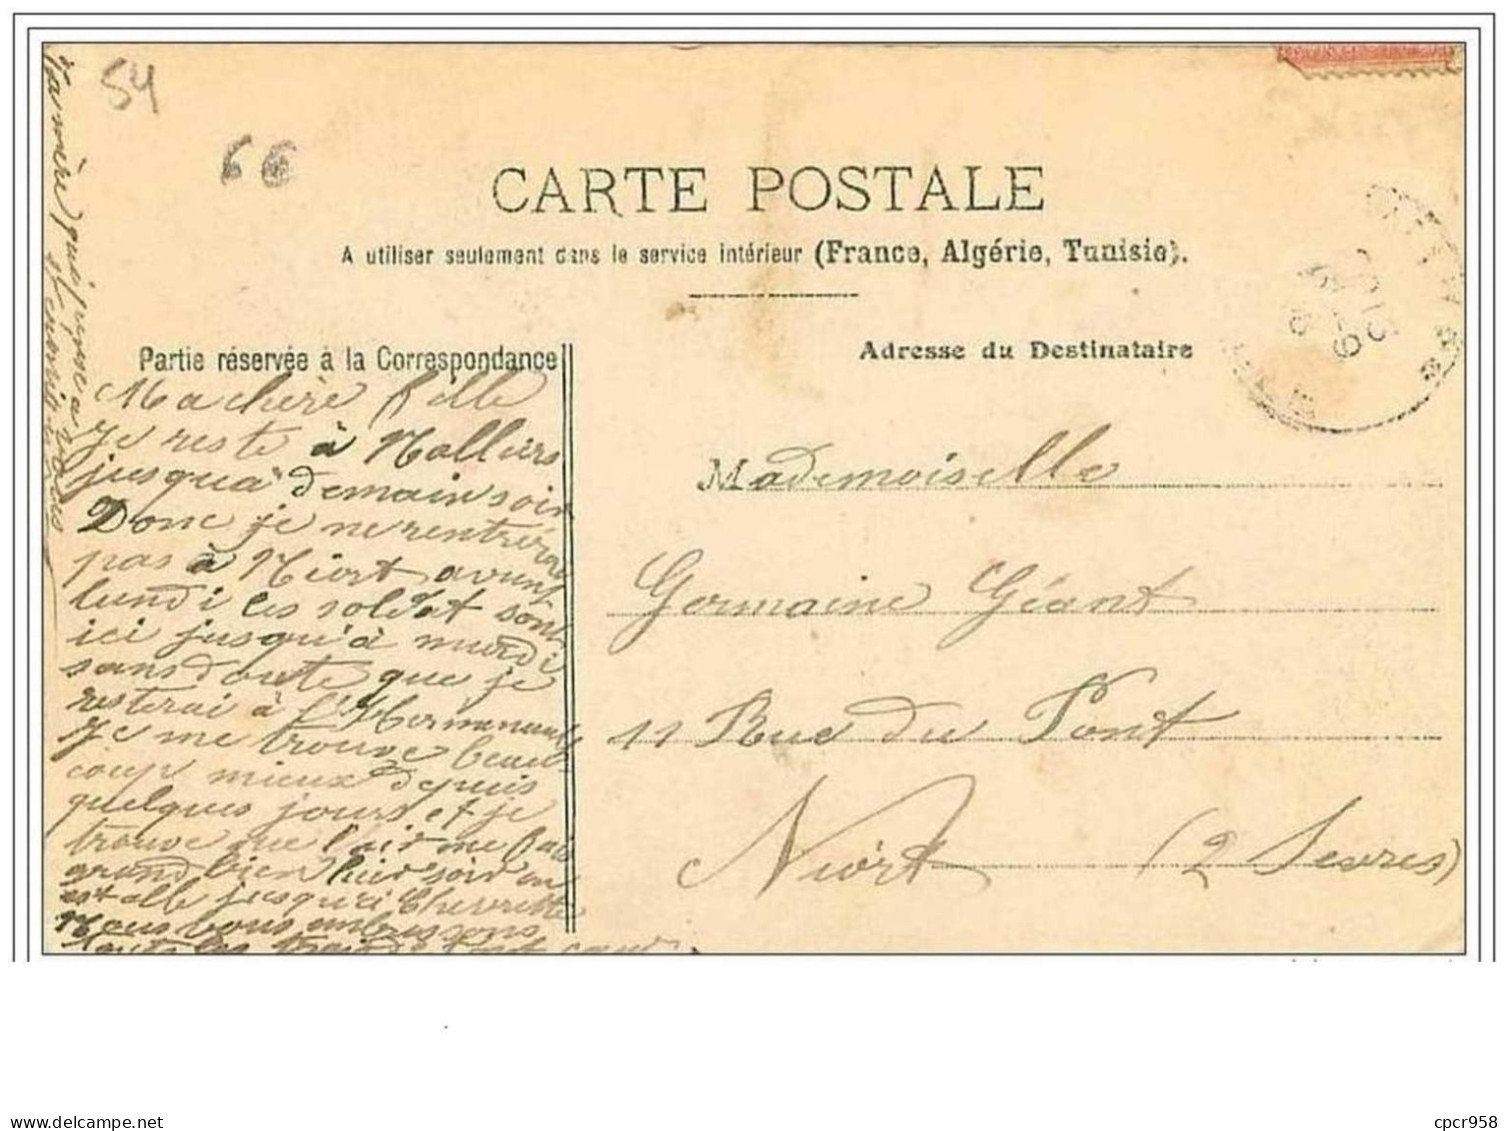 54
66
CARTE POSTALE
A utiliser seulement dans le service intérieur (France, Algérie, Tunisie).
Partie réservée à la Correspondance
Adresse du Destinataire
Ma chéré fille
je reste à Nalliers
jusqua demain soir
Donc je ne rentrérai
pas à Niort avant
lundi les soldat sont
ici jusqu'à mardi
sans doute que je
resterai à l'Hermenault
je me trouve beau-
coup mieux depuis
quelques jours et je
trouve que l'air me fait
grand bien hier soir on
est allé jusqu'à Chevrette
Nous vous embrassons
toute les trois de tout cœur
Ta mère qui pense a vous
Mademoiselle
Germaine Géant
11 Rue du Pont
Niort (2 Sevres)
cpcr958
www.delcampe.net